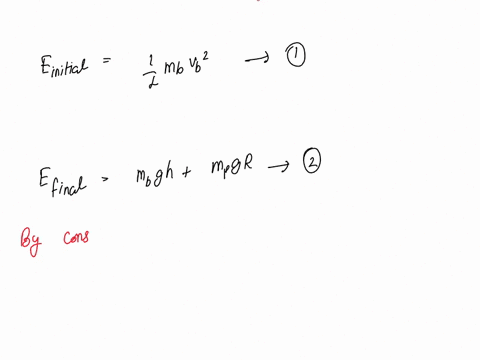 E_initial = 1/2 m_b v_b² → ①
E_final = m_b g h + m_p g R → ②
By cons